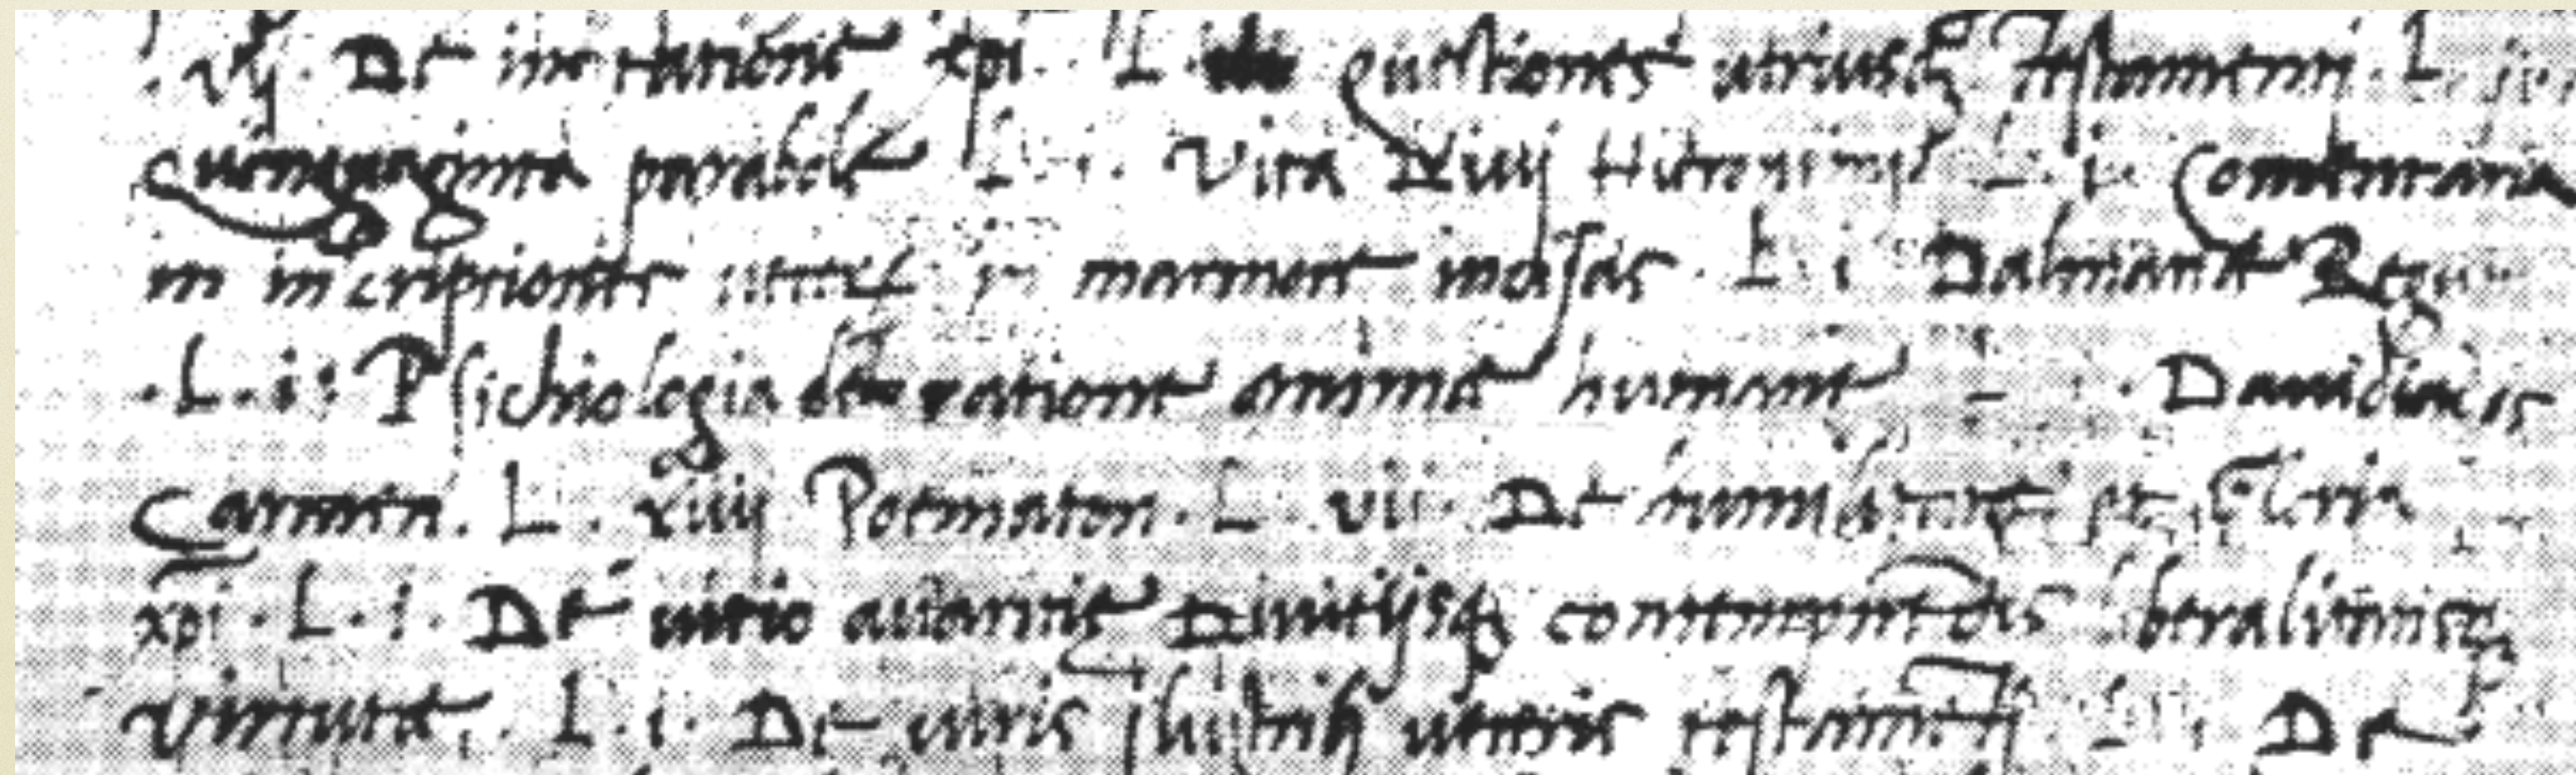 xij. De imitatione xpi. L. questiones utriusq; testamenti. L.
Quinquaginta parabole L. i. Vita Divi Hieronimi L. i. Commentaria
in inscriptiones in marmore incisas. L. i Dalmatie Regum
. L. i: Psichiologia de ratione anime humane L i. Davidiadis
Carmen. L. xiiij Poematon. L. vii. De humilitate et Gloria
xpi. L. i. De vitio avaritie Divitijsq; contemptoris liberalitatisq;
virtute. L. i. De viris illustrib veteris testamti L. i. De